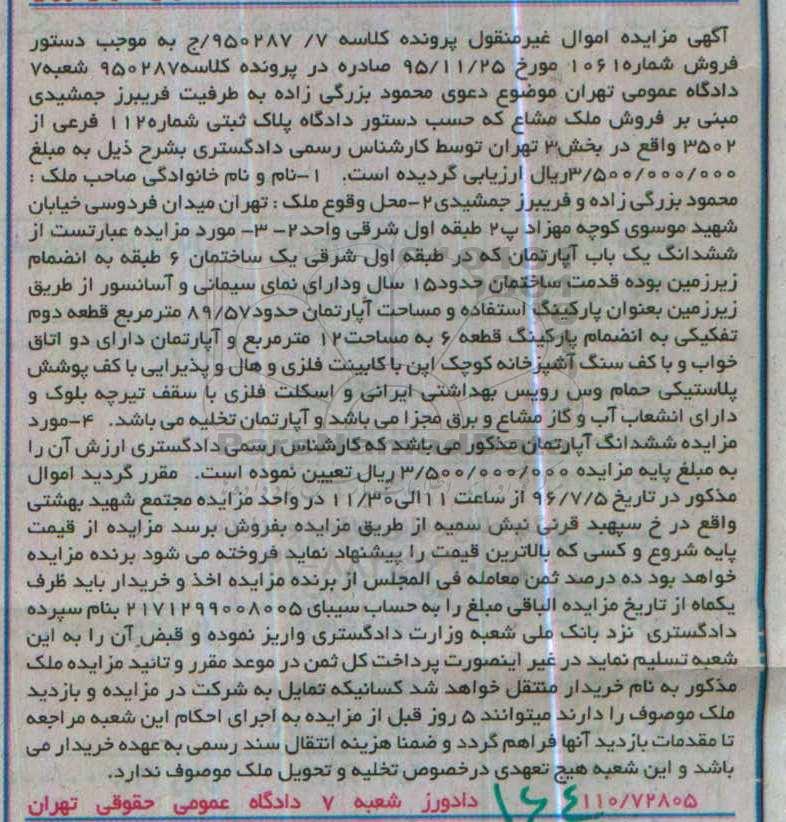 آگهی مزایده اموال غیرمنقول پرونده کلاسه ۷/ ۹۵۰۲۸۷/ج به موجب دستور
فروش شماره۱۰۶۱ مورخ ۹۵/۱۱/۲۵ صادره در پرونده کلاسه۹۵۰۲۸۷ شعبه۷
دادگاه عمومی تهران موضوع دعوی محمود بزرگی زاده به طرفیت فریبرز جمشیدی
مبنی بر فروش ملک مشاع که حسب دستور دادگاه پلاک ثبتی شماره۱۱۲ فرعی از
۳۵۰۲ واقع در بخش۳ تهران توسط کارشناس رسمی دادگستری بشرح ذیل به مبلغ
۳/۵۰۰/۰۰۰/۰۰۰ریال ارزیابی گردیده است. ۱-نام و نام خانوادگی صاحب ملک :
محمود بزرگی زاده و فریبرز جمشیدی۲-محل وقوع ملک : تهران میدان فردوسی خیابان
شهید موسوی کوچه مهزاد پ۲ طبقه اول شرقی واحد۲- ۳- مورد مزایده عبارتست از
ششدانگ یک باب آپارتمان که در طبقه اول شرقی یک ساختمان ۶ طبقه به انضمام
زیرزمین بوده قدمت ساختمان حدود۱۵ سال ودارای نمای سیمانی و آسانسور از طریق
زیرزمین بعنوان پارکینگ استفاده و مساحت آپارتمان حدود۸۹/۵۷ مترمربع قطعه دوم
تفکیکی به انضمام پارکینگ قطعه ۶ به مساحت۱۲ مترمربع و آپارتمان دارای دو اتاق
خواب و با کف سنگ آشپزخانه کوچک اپن با کابینت فلزی و هال و پذیرایی با کف پوشش
پلاستیکی حمام وس رویس بهداشتی ایرانی و اسکلت فلزی با سقف تیرچه بلوک و
دارای انشعاب آب و گاز مشاع و برق مجزا می باشد و آپارتمان تخلیه می باشد. ۴-مورد
مزایده ششدانگ آپارتمان مذکور می باشد که کارشناس رسمی دادگستری ارزش آن را
به مبلغ پایه مزایده ۳/۵۰۰/۰۰۰/۰۰۰ ریال تعیین نموده است. مقرر گردید اموال
مذکور در تاریخ ۹۶/۷/۵ از ساعت ۱۱الی۱۱/۳۰ در واحد مزایده مجتمع شهید بهشتی
واقع در خ سپهبد قرنی نبش سمیه از طریق مزایده بفروش برسد مزایده از قیمت
پایه شروع و کسی که بالاترین قیمت را پیشنهاد نماید فروخته می شود برنده مزایده
خواهد بود ده درصد ثمن معامله فی المجلس از برنده مزایده اخذ و خریدار باید ظرف
یکماه از تاریخ مزایده الباقی مبلغ را به حساب سیبای ۲۱۷۱۲۹۹۰۰۸۰۰۵ بنام سپرده
دادگستری نزد بانک ملی شعبه وزارت دادگستری واریز نموده و قبض آن را به این
شعبه تسلیم نماید در غیر اینصورت پرداخت کل ثمن در موعد مقرر و تائید مزایده ملک
مذکور به نام خریدار منتقل خواهد شد کسانیکه تمایل به شرکت در مزایده و بازدید
ملک موصوف را دارند میتوانند ۵ روز قبل از مزایده به اجرای احکام این شعبه مراجعه
تا مقدمات بازدید آنها فراهم گردد و ضمنا هزینه انتقال سند رسمی به عهده خریدار می
باشد و این شعبه هیچ تعهدی درخصوص تخلیه و تحویل ملک موصوف ندارد.
۱۱۰/۷۲۸۰۵ ۱۶۴ دادورز شعبه ۷ دادگاه عمومی حقوقی تهران